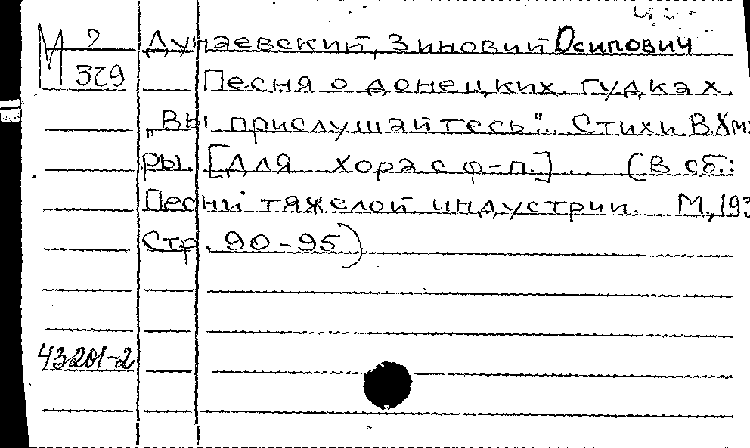 М 2/379
Дунаевский, Зиновий Осипович
Песня о донецких гудках.
"Вы прислушайтесь". Стихи В.
ры. [Для хора с ф-п.] (В сб.:
Песни тяжелой индустрии. М, 193
Стр. 90-95)
43201-2